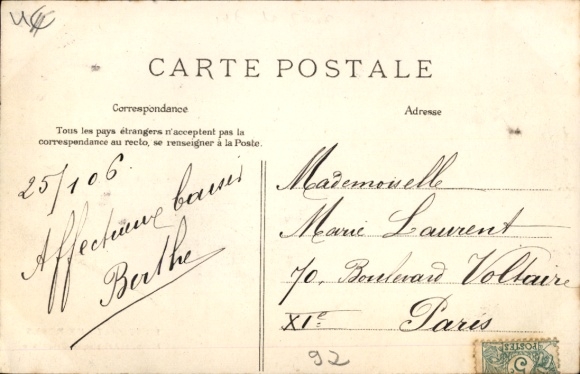 CARTE POSTALE
Correspondance
Adresse
Tous les pays étrangers n'acceptent pas la
correspondance au recto, se renseigner à la Poste.
25/1 06.
Affectueux baisers
Berthe
Mademoiselle
Marie Laurent
70, Boulevard Voltaire
XIe Paris
92
POSTES
5